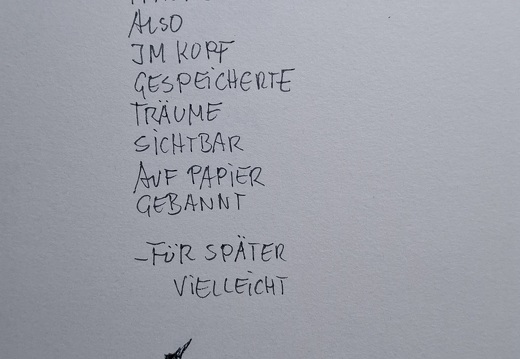 ALSO
IM KOPF
GESPEICHERTE
TRÄUME
SICHTBAR
AUF PAPIER
GEBANNT
–FÜR SPÄTER
VIELLEICHT